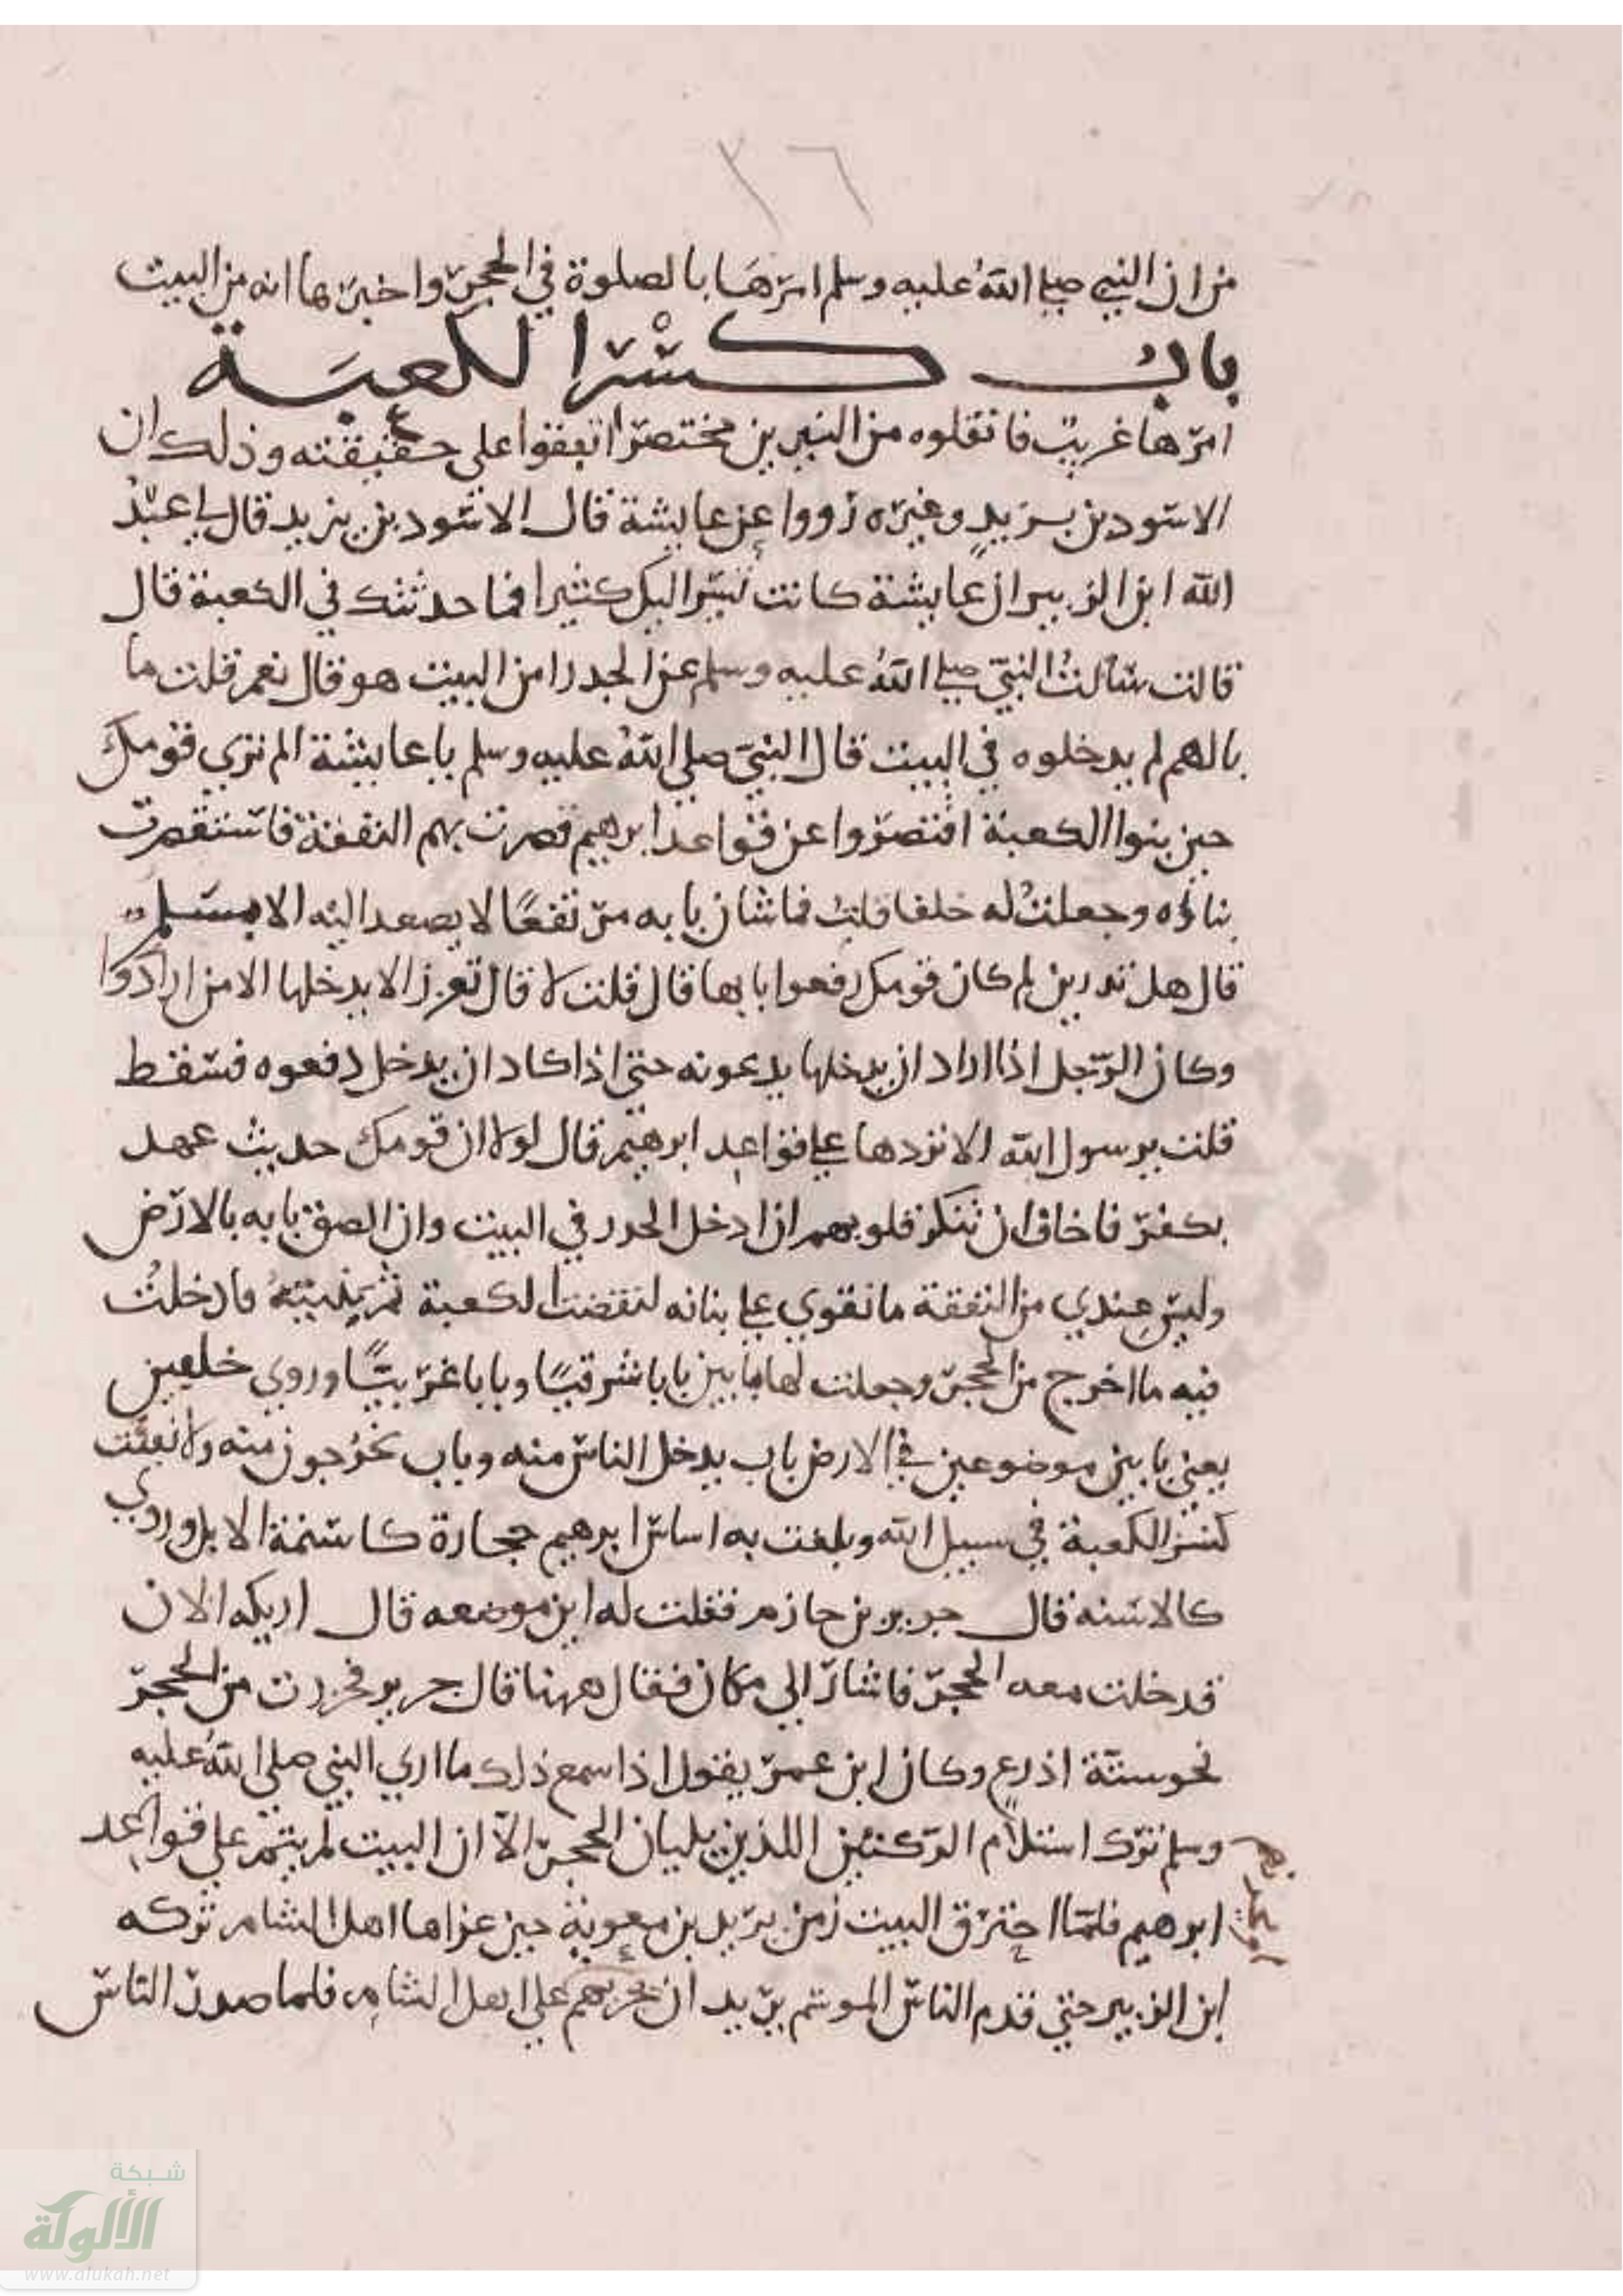 ٢٦
من ان النبي صلى الله عليه وسلم امرها بالصلوة في الحجر واخبرها انه من البيت
باب كسر الكعبة
امرها غريب فانقلوه من النيرين مختصرا تعفوا على حقيقته وذلك ان
الاسود بن يزيد وغيره رووا عن عايشة قال الاسود بن يزيد قال لي عبد
الله ابن الزبير ان عايشة كانت تسر اليك كثيرا فما حدثتك في الكعبة قال
قالت سالت النبي صلى الله عليه وسلم عن الجدر امن البيت هو قال نعم قلت ما
بالهم لم يدخلوه في البيت قال النبي صلى الله عليه وسلم يا عايشة الم تري قومك
حين بنوا الكعبة اقتصروا عن قواعد ابرهيم قصرت بهم النفقة فاستقصرت
بناؤه وجعلت له خلفا قلت فما شان بابه مرتفعا لا يصعد اليه الا بسلم
قال هل تدرين لم كان قومك رفعوا بابها قال قلت لا قال تعززا لا يدخلها الا من ارادوا
وكان الرجل اذا اراد ان يدخلها يدعونه حتى اذا كاد ان يدخل دفعوه فسقط
قلت يرسول الله الا نردها على قواعد ابرهيم قال لولا ان قومك حديث عهد
بكفر فاخاف ان تنكر قلوبهم ان ادخل الجدر في البيت وان الصق بابه بالارض
وليس عندي من النفقة ما نقوي على بنانه لنقضت الكعبة ثم بنيته فادخلت
فيه ما اخرج من الحجر وجعلت لها بابين بابا شرقيا وبابا غربيا وروي خلعين
يعني بابين موضوعين في الارض باب يدخل الناس منه وباب يخرجون منه ولانفقت
كنز الكعبة في سبيل الله وبلغت به اساس ابرهيم حجارة كاسنمة الابل وروي
كالاسنه قال جرير بن حازم فقلت له اين موضعه قال اريكه الان
فدخلت معه الحجر فاشار الى مكان فقال ههنا قال جرير فحزرت من الحجر
نحو ستة اذرع وكان ابن عمر يقول اذا سمع ذلك ما اري النبي صلى الله عليه
وسلم ترك استلام الركنين اللذين يليان الحجر الا ان البيت لم يتم على قواعد
ابرهيم فلما احترق البيت زمن يزيد بن معوية حين غزاها اهل الشام تركه
ابن الزبير حتى قدم الناس الموسم يريد ان يحربهم على اهل الشام فلما صدر الناس
شبكة
الألوكة
www.alukah.net